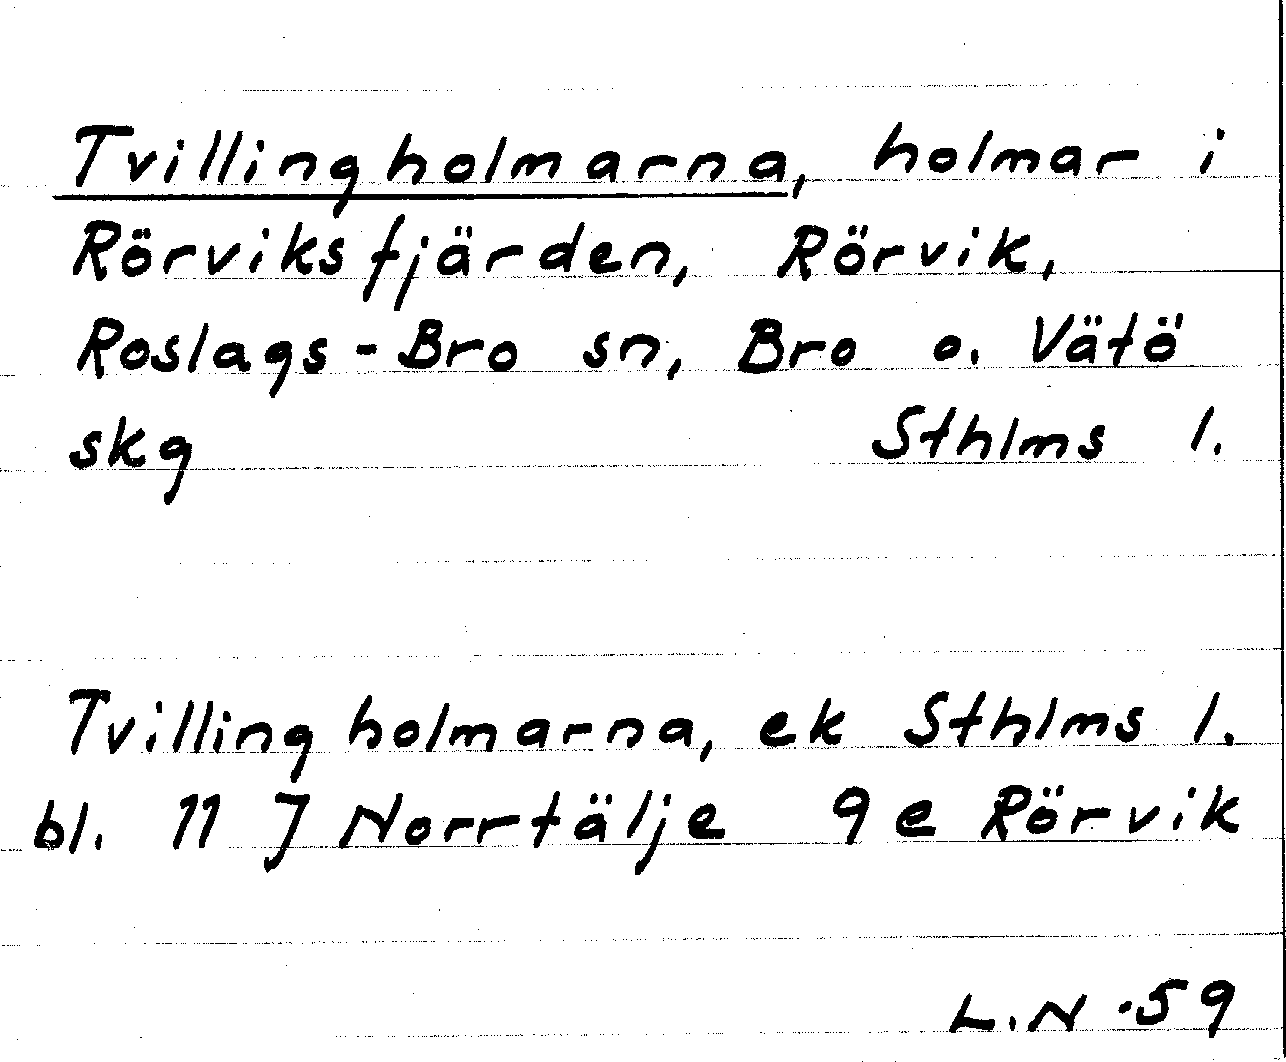 Tvillingholmarna, holmar i
Rörviksfjärden, Rörvik,
Roslags-Bro sn, Bro o. Vätö
skg Sthlms l.
Tvillingholmarna, ek Sthlms l.
bl. 11 J Norrtälje 9 e Rörvik
L.N ·59